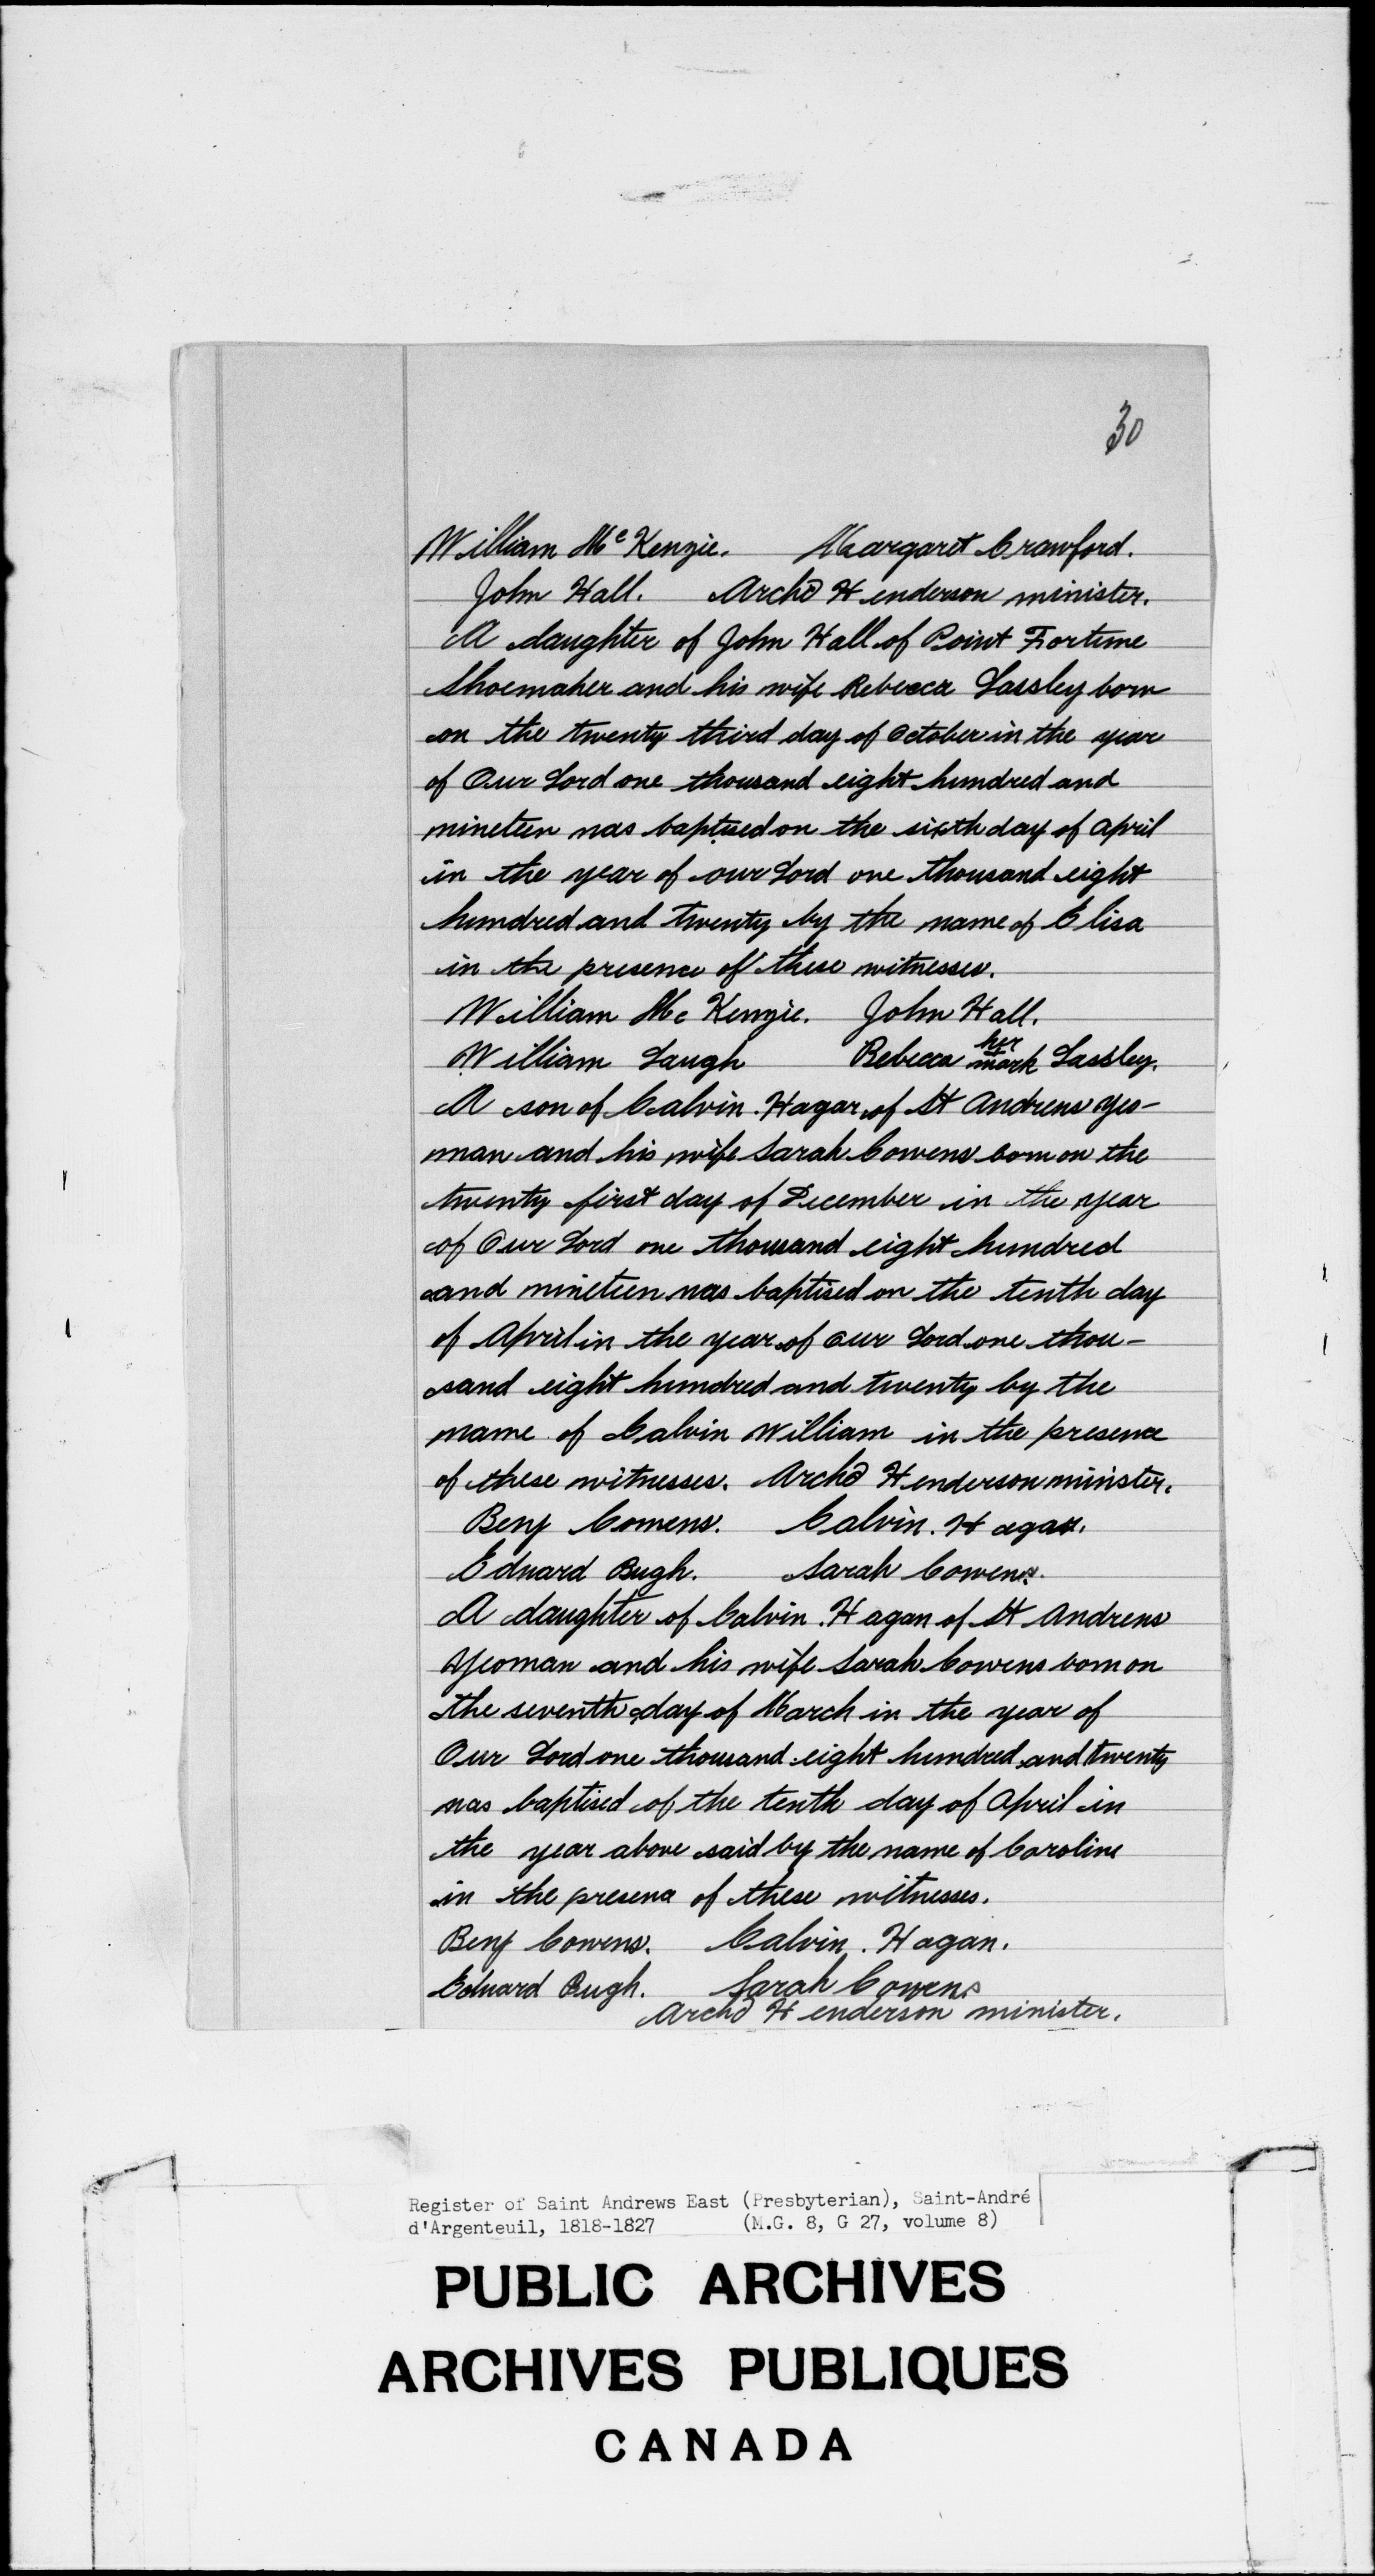 30
William Mc Kenzie. Margaret Crawford.
John Hall. Archd Henderson minister.
A daughter of John Hall of Point Fortune
Shoemaker and his wife Rebecca Lassley born
on the twenty third day of October in the year
of Our Lord one thousand eight hundred and
nineteen was baptised on the sixth day of April
in the year of our Lord one thousand eight
hundred and twenty by the name of Elisa
in the presence of these witnesses.
William Mc Kenzie. John Hall.
William Laugh Rebecca her mark Lassley.
A son of Calvin Hagar of St Andrews yeo-
man and his wife Sarah Cowens born on the
twenty first day of December in the year
of Our Lord one thousand eight hundred
and nineteen was baptised on the tenth day
of April in the year of Our Lord one thou-
sand eight hundred and twenty by the
name of Calvin William in the presence
of these witnesses. Archd Henderson minister.
Benj Cowens. Calvin. Hagar.
Edward Bugh. Sarah Cowens.
A daughter of Calvin. Hagan of St Andrews
Yeoman and his wife Sarah Cowens born on
the seventh day of March in the year of
Our Lord one thousand eight hundred and twenty
was baptised of the tenth day of April in
the year above said by the name of Caroline
in the presence of these witnesses.
Benj Cowens. Calvin. Hagan.
Edward Bugh. Sarah Cowens
Archd Henderson minister.
Register of Saint Andrews East (Presbyterian), Saint-André
d'Argenteuil, 1818-1827 (M.G. 8, G 27, volume 8)
PUBLIC ARCHIVES
ARCHIVES PUBLIQUES
CANADA